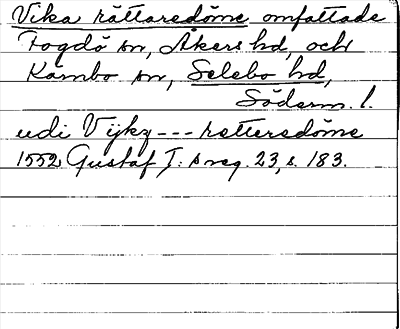 Vika rättaredöme omfattade
Fogdö sn, Åkers hd, och
Kärnbo sn, Selebo hd,
Söderm. l.
udi Vijky --- rettersdöme
1552, Gustaf I:s reg. 23, s. 183.